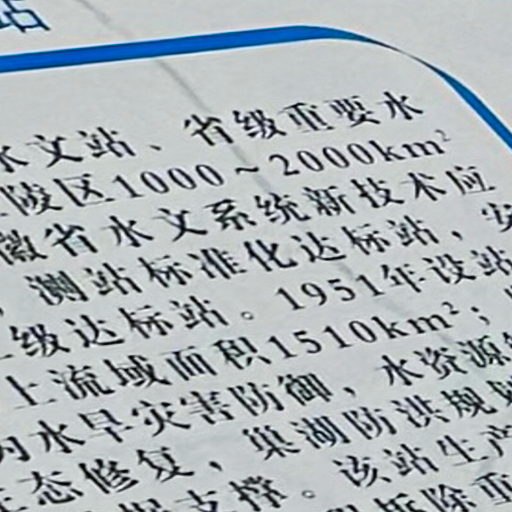 站
水文站、省级重要水
陵区1000～2000km²
徽省水文系统新技术应
，测站标准化达标站，安
级达标站。1951年设站
上流域面积1510km²；
为水旱灾害防御，水资源
生态修复，巢湖防洪规划
支撑。该站生产
拆除重